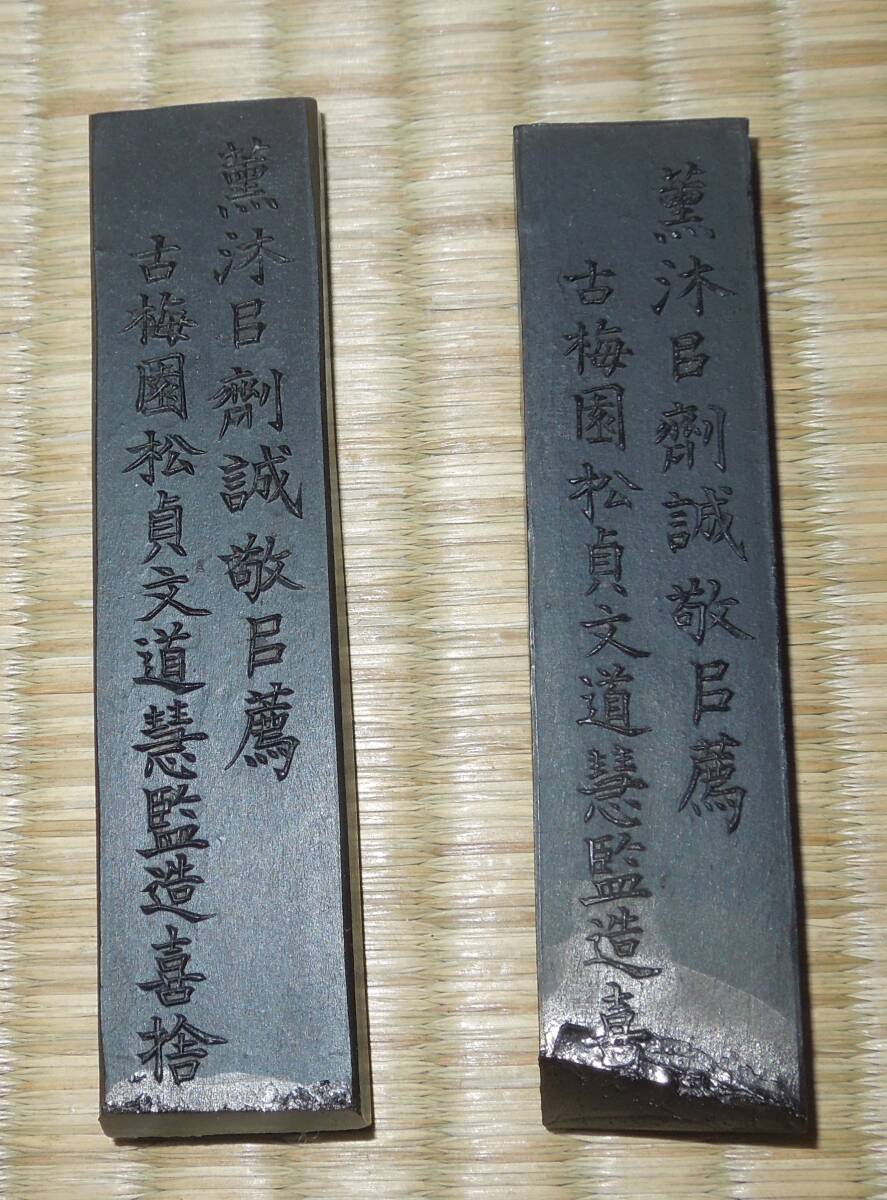 薫沐㠯劑誠敬㠯薦
古梅園松貞文道慧監造喜捨
薫沐㠯劑誠敬㠯薦
古梅園松貞文道慧監造喜